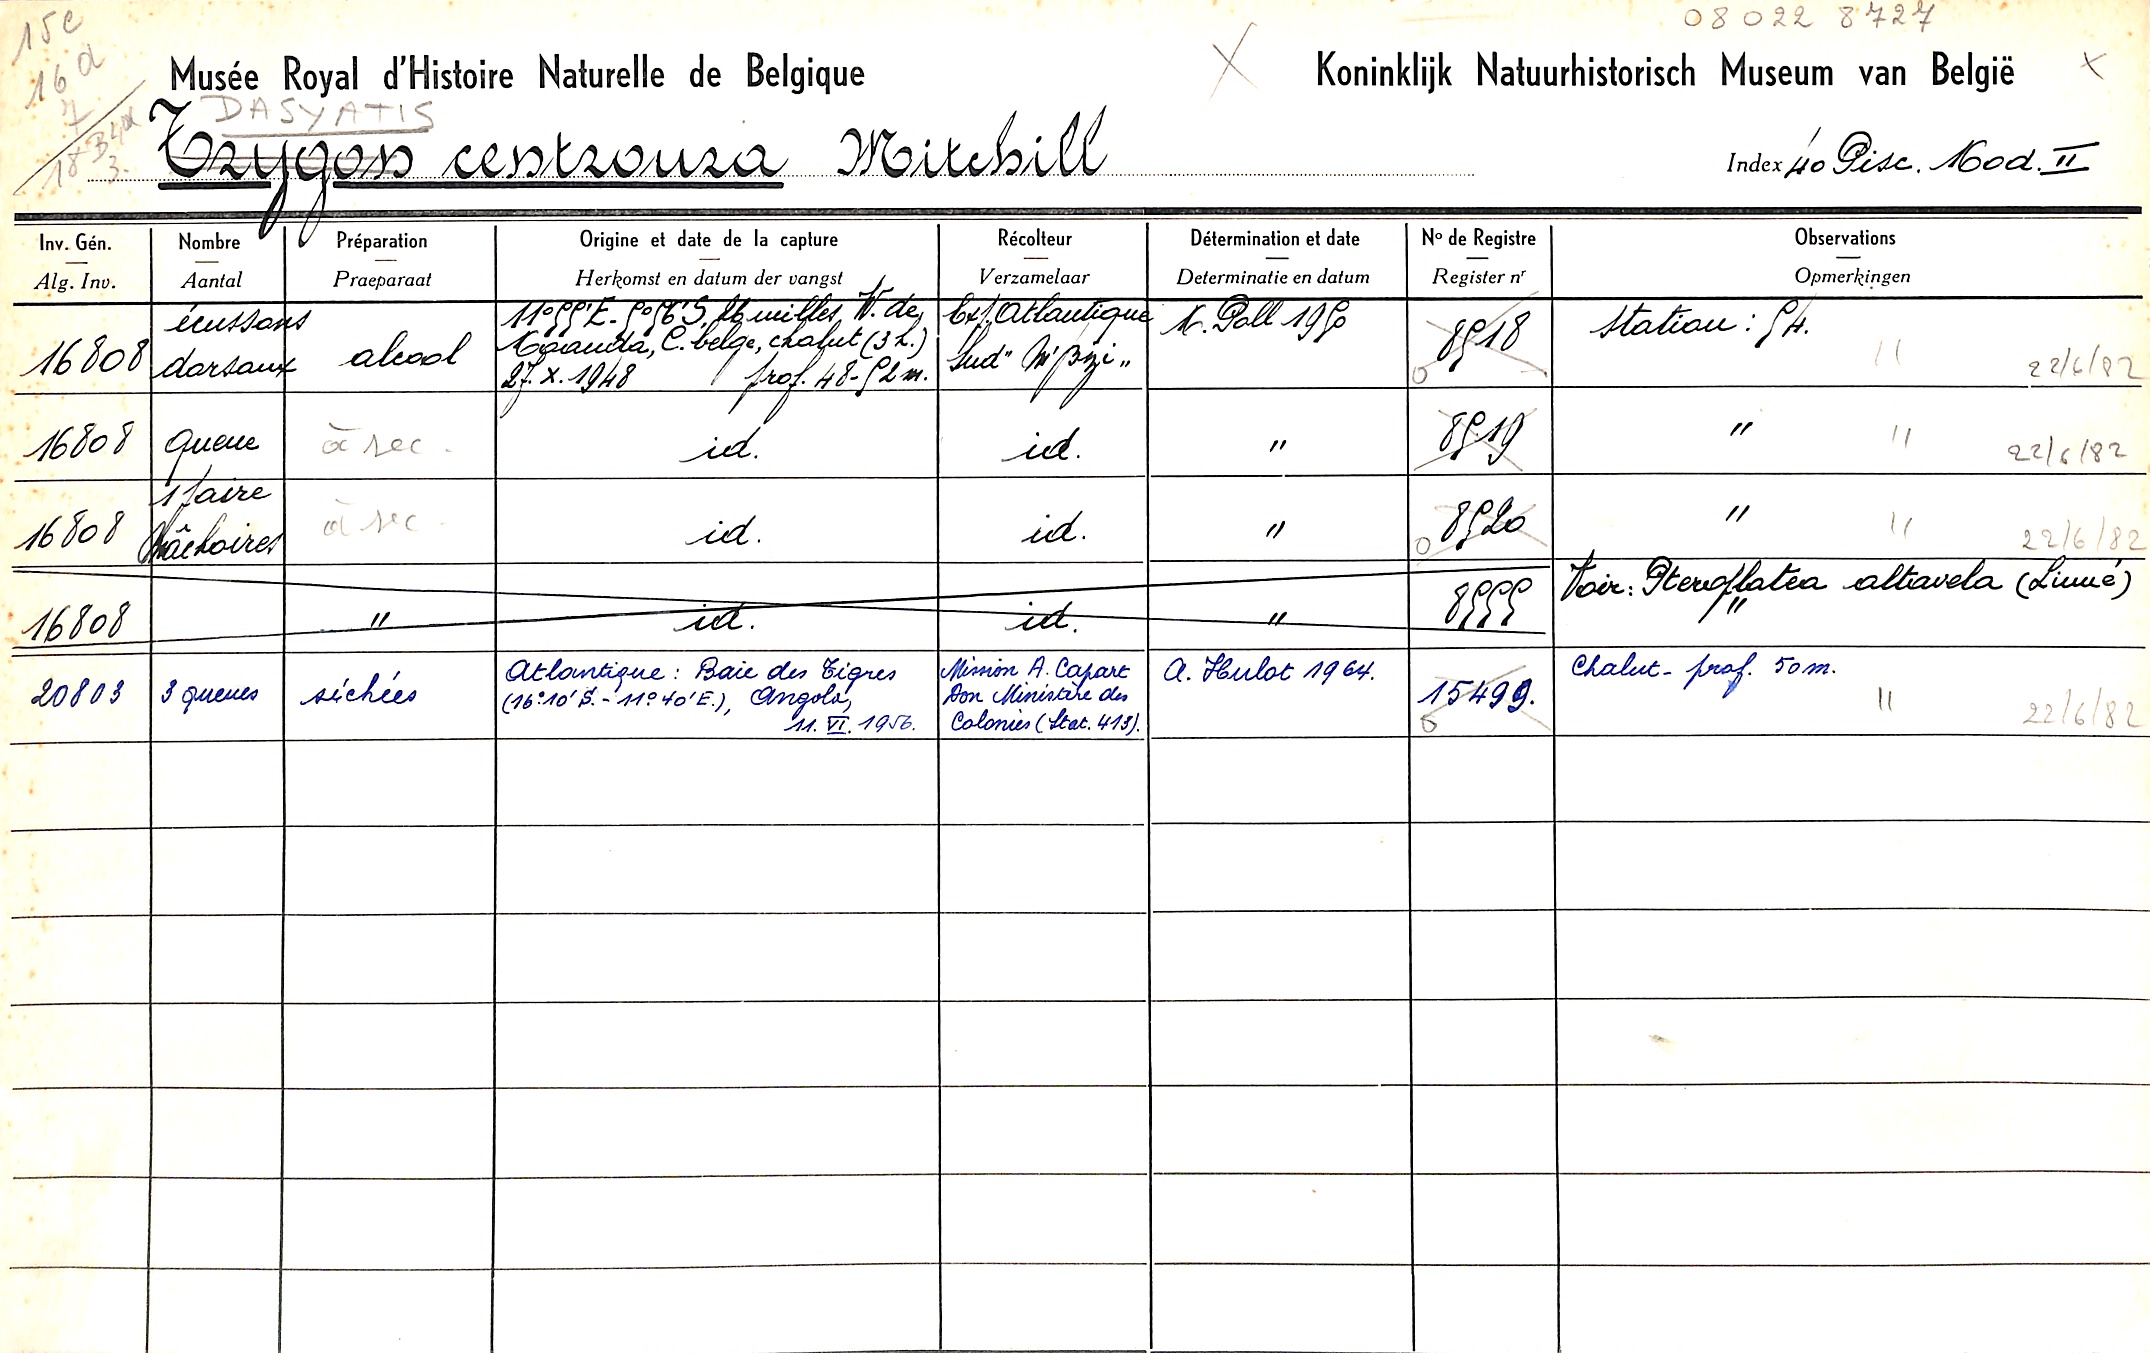 15c
08022 8727
16 d
Musée Royal d'Histoire Naturelle de Belgique
Koninklijk Natuurhistorisch Museum van België
7
DASYATIS
18 B4a
3.
Trygon centroura Mitchill
Index 40 Pisc. Mod. II
Inv. Gén. Nombre Préparation Origine et date de la capture Récolteur Détermination et date No de Registre Observations
Alg. Inv. Aantal Praeparaat Herkomst en datum der vangst Verzamelaar Determinatie en datum Register nr Opmerkingen
16808 écussons dorsaux alcool
11°55'E - 5°56'S, 26 milles W. de
Moanda, C. belge, chalut (3 h.)
27.X.1948 prof. 48-52 m.
Ext. Atlantique
Sud "M'Bizi"
M. Poll 1950 8518 Station: 54. " 22/6/82
16808 queue à sec. id. id. " 8519 " " 22/6/82
16808 1 paire mâchoires à sec. id. id. " 8520 " " 22/6/82
16808 " id. id. " 8555 Voir: Pteroplatea altavela (Linné)
"
20803 3 queues séchées
Atlantique: Baie des Tigres
(16°10'S. - 11°40'E.), Angola,
11.VI.1956.
Mission A. Capart
Don Ministère des
Colonies (Stat. 413).
A. Hulot 1964. 15499. Chalut - prof. 50m.
" 22/6/82